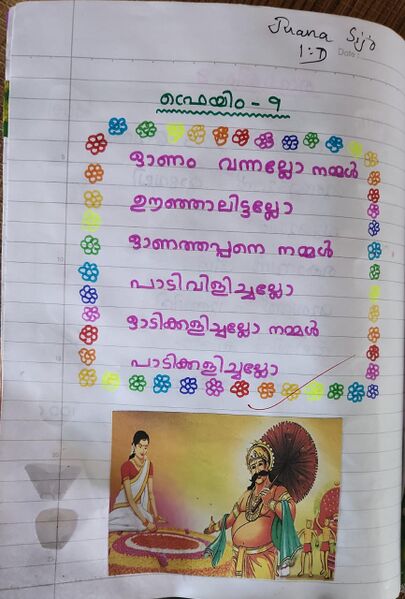 Juana Sijo
1:D
Date :
ഫ്രെയിം - 9
ഓണം വന്നല്ലോ നമ്മൾ
ഊഞ്ഞാലിട്ടല്ലോ
ഓണത്തപ്പനെ നമ്മൾ
പാടിവിളിച്ചല്ലോ
ഓടിക്കളിച്ചല്ലോ നമ്മൾ
പാടിക്കളിച്ചല്ലോ